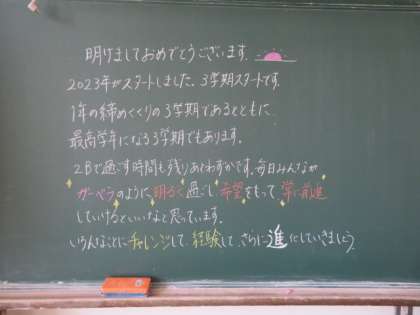 明けましておめでとうございます.
2023年がスタートしました。3学期スタートです。
1年の締めくくりの3学期であるとともに
最高学年になる3学期でもあります。
2Bで過ごす時間も残りあとわずかです。毎日みんなが
ガーベラのように明るく過ごし希望をもって常に前進
していけるといいなと思っています。
いろんなことにチャレンジして、経験して、さらに進化していきましょう。